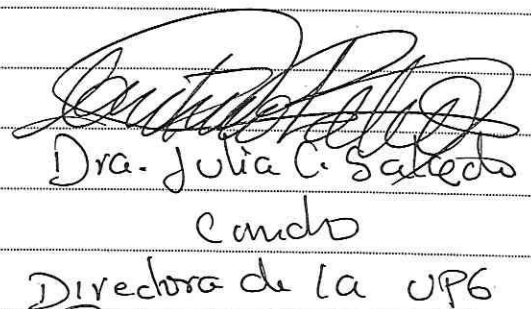 Dra. Julia C. Salcedo
Directora de la UPG